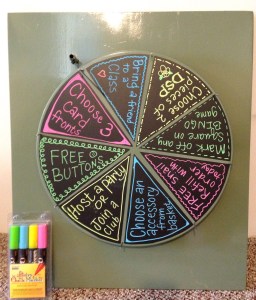 Bring a friend
to a
Class
Choose 2
pieces of
DSP
Mark off any
Square on
BINGO
game
FREE Small
Refill with
order
Choose an
accessory
from
basket
Host a party
OR
join a
club
FREE
BUTTONS
Choose 3
Card
fronts